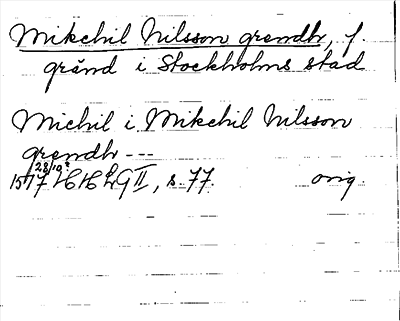 Mikchil Nilsson grendh, f.
gränd i Stockholms stad
Michil i. Mikchil Nilsson
grendh ---
1577 28/10? HH LG II, s. 77. orig.